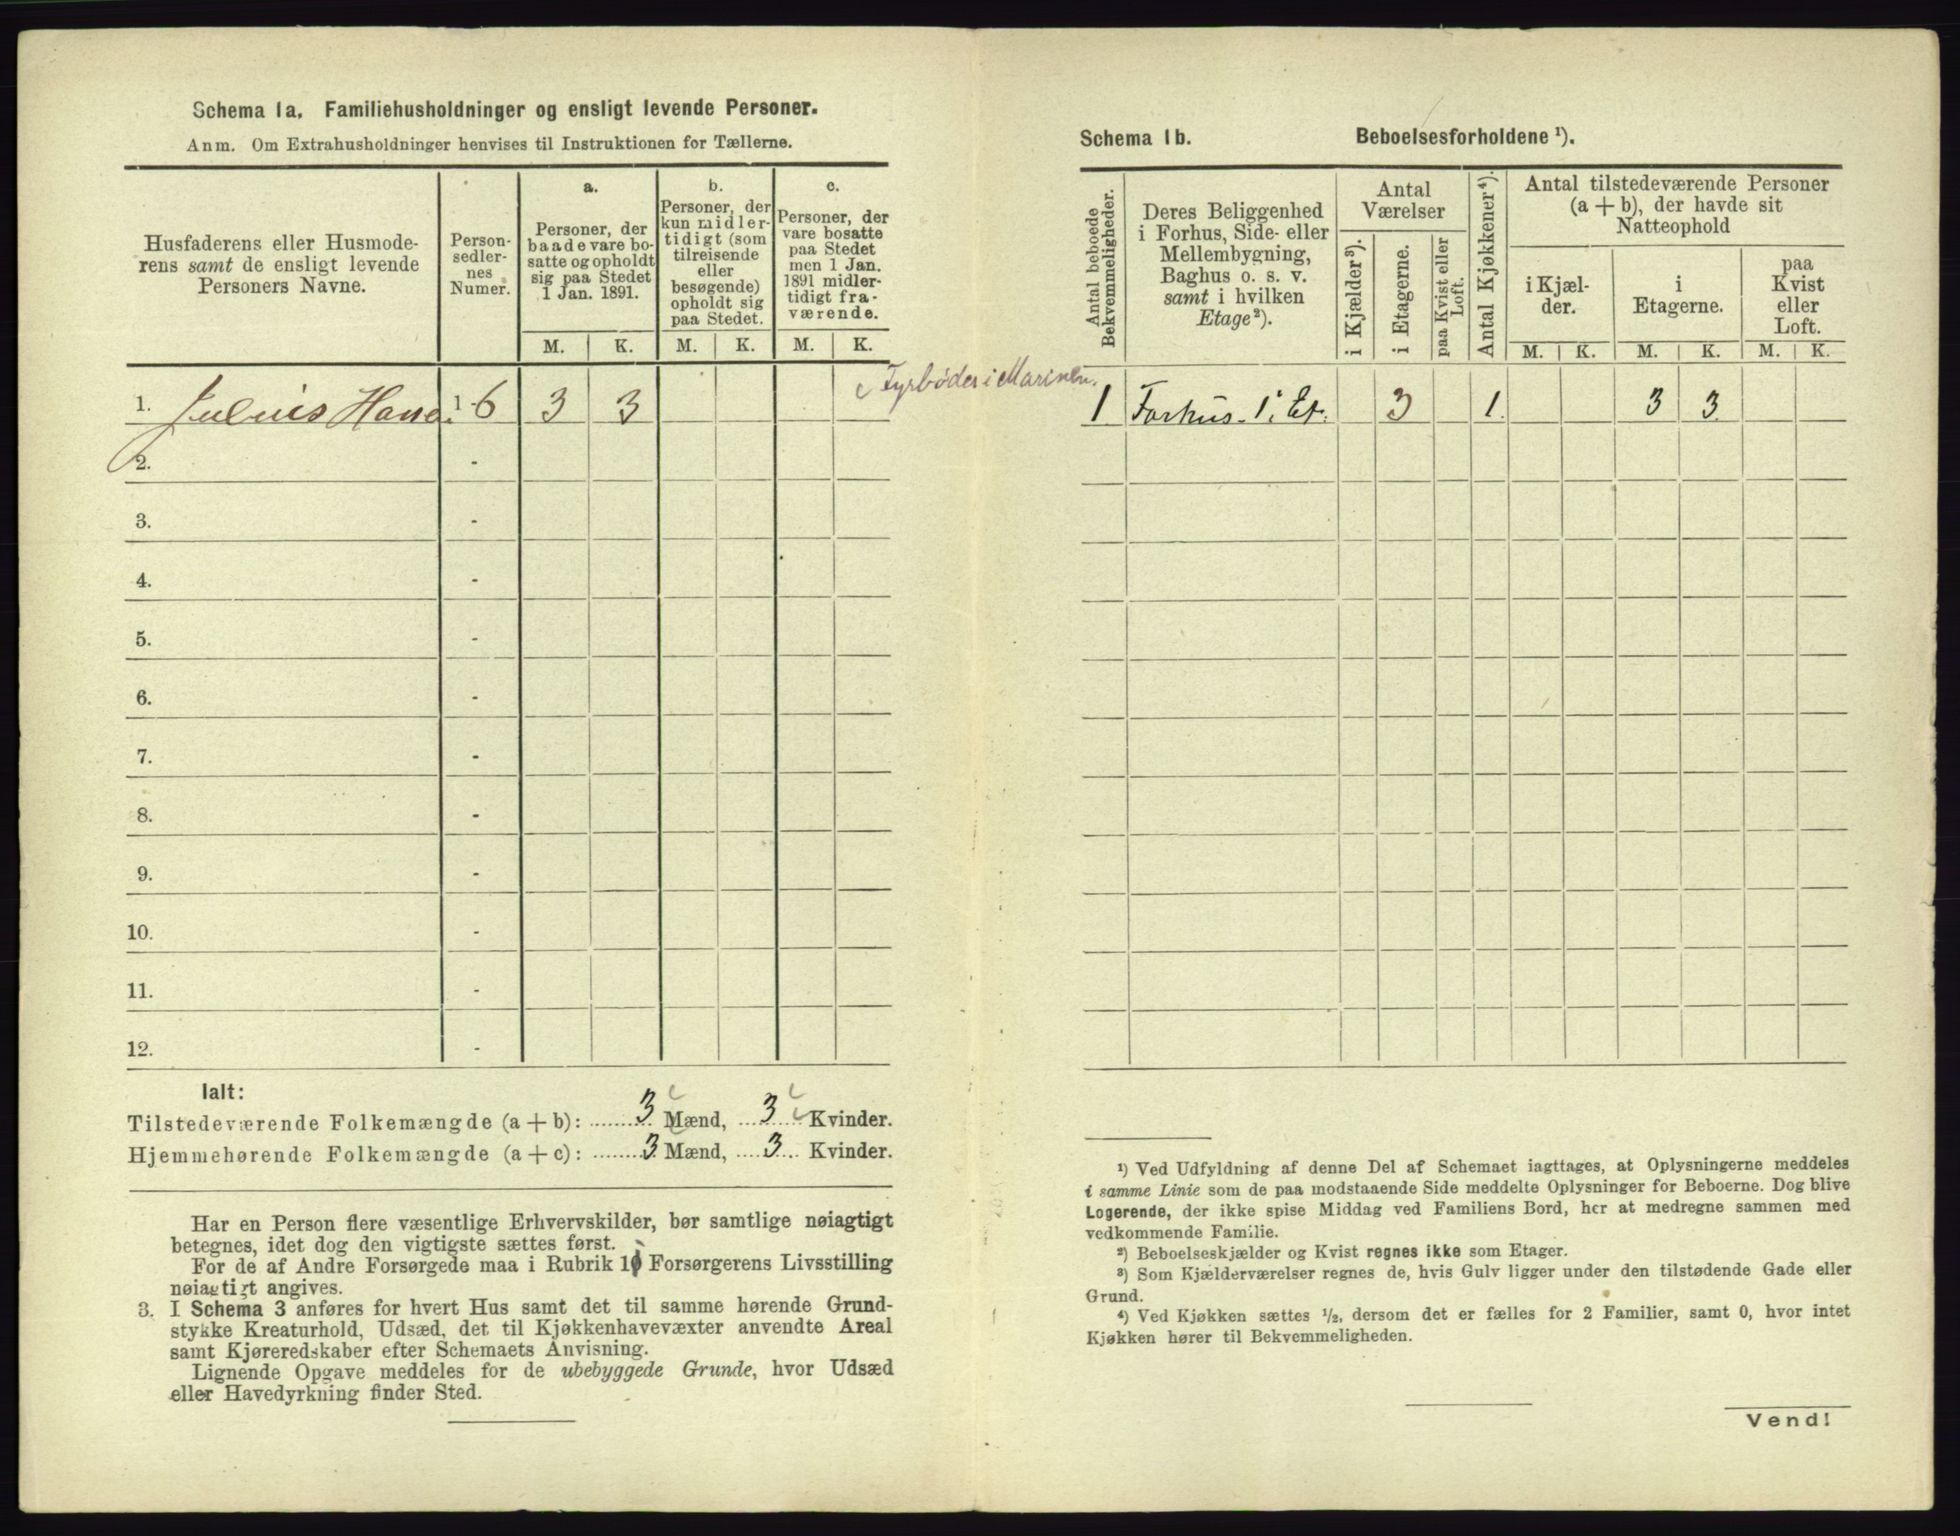 Schema 1a. Familiehusholdninger og ensligt levende Personer.
Anm. Om Extrahusholdninger henvises til Instruktionen for Tællerne.
Husfaderens eller Husmode-
rens samt de ensligt levende
Personers Navne.
Person-
sedler-
nes
Numer.
a.
Personer, der
baade vare bo-
satte og opholdt
sig paa Stedet
1 Jan. 1891.
b.
Personer, der
kun midler-
tidigt (som
tilreisende
eller
besøgende)
opholdt sig
paa Stedet.
c.
Personer, der
vare bosatte
paa Stedet
men 1 Jan.
1891 midler-
tidigt fra-
værende.
M. K. M. K. M. K.
Fyrbøder i Marinen.
1. Julius Hans 1-6 3 3
2. -
3. -
4. -
5. -
6. -
7. -
8. -
9. -
10. -
11. -
12. -
Ialt:
Tilstedeværende Folkemængde (a + b): ........3 Mænd, ....3.... Kvinder.
Hjemmehørende Folkemængde (a + c): ........3 Mænd, ....3... Kvinder.
Har en Person flere væsentlige Erhvervskilder, bør samtlige nøiagtigt
betegnes, idet dog den vigtigste sættes først.
For de af Andre Forsørgede maa i Rubrik 10 Forsørgerens Livsstilling
nøiagtigt angives.
3. I Schema 3 anføres for hvert Hus samt det til samme hørende Grund-
stykke Kreaturhold, Udsæd, det til Kjøkkenhavevæxter anvendte Areal
samt Kjøreredskaber efter Schemaets Anvisning.
Lignende Opgave meddeles for de ubebyggede Grunde, hvor Udsæd
eller Havedyrkning finder Sted.
Schema 1b. Beboelsesforholdene ¹).
Antal beboede
Bekvemmeligheder.
Deres Beliggenhed
i Forhus, Side- eller
Mellembygning,
Baghus o. s. v.
samt i hvilken
Etage²).
Antal
Værelser
i Kjælder³).
i Etagerne.
paa Kvist eller
Loft.
Antal Kjøkkener⁴).
Antal tilstedeværende Personer
(a + b), der havde sit
Natteophold
i Kjæl-
der.
i
Etagerne.
paa
Kvist
eller
Loft.
M. K. M. K. M. K.
1 Forhus 1. Et. 3 1. 3 3
¹) Ved Udfyldning af denne Del af Schemaet iagttages, at Oplysningerne meddeles
i samme Linie som de paa modstaaende Side meddelte Oplysninger for Beboerne. Dog blive
Logerende, der ikke spise Middag ved Familiens Bord, her at medregne sammen med
vedkommende Familie.
²) Beboelseskjælder og Kvist regnes ikke som Etager.
³) Som Kjælderværelser regnes de, hvis Gulv ligger under den tilstødende Gade eller
Grund.
⁴) Ved Kjøkken sættes ½, dersom det er fælles for 2 Familier, samt 0, hvor intet
Kjøkken hører til Bekvemmeligheden.
Vend!